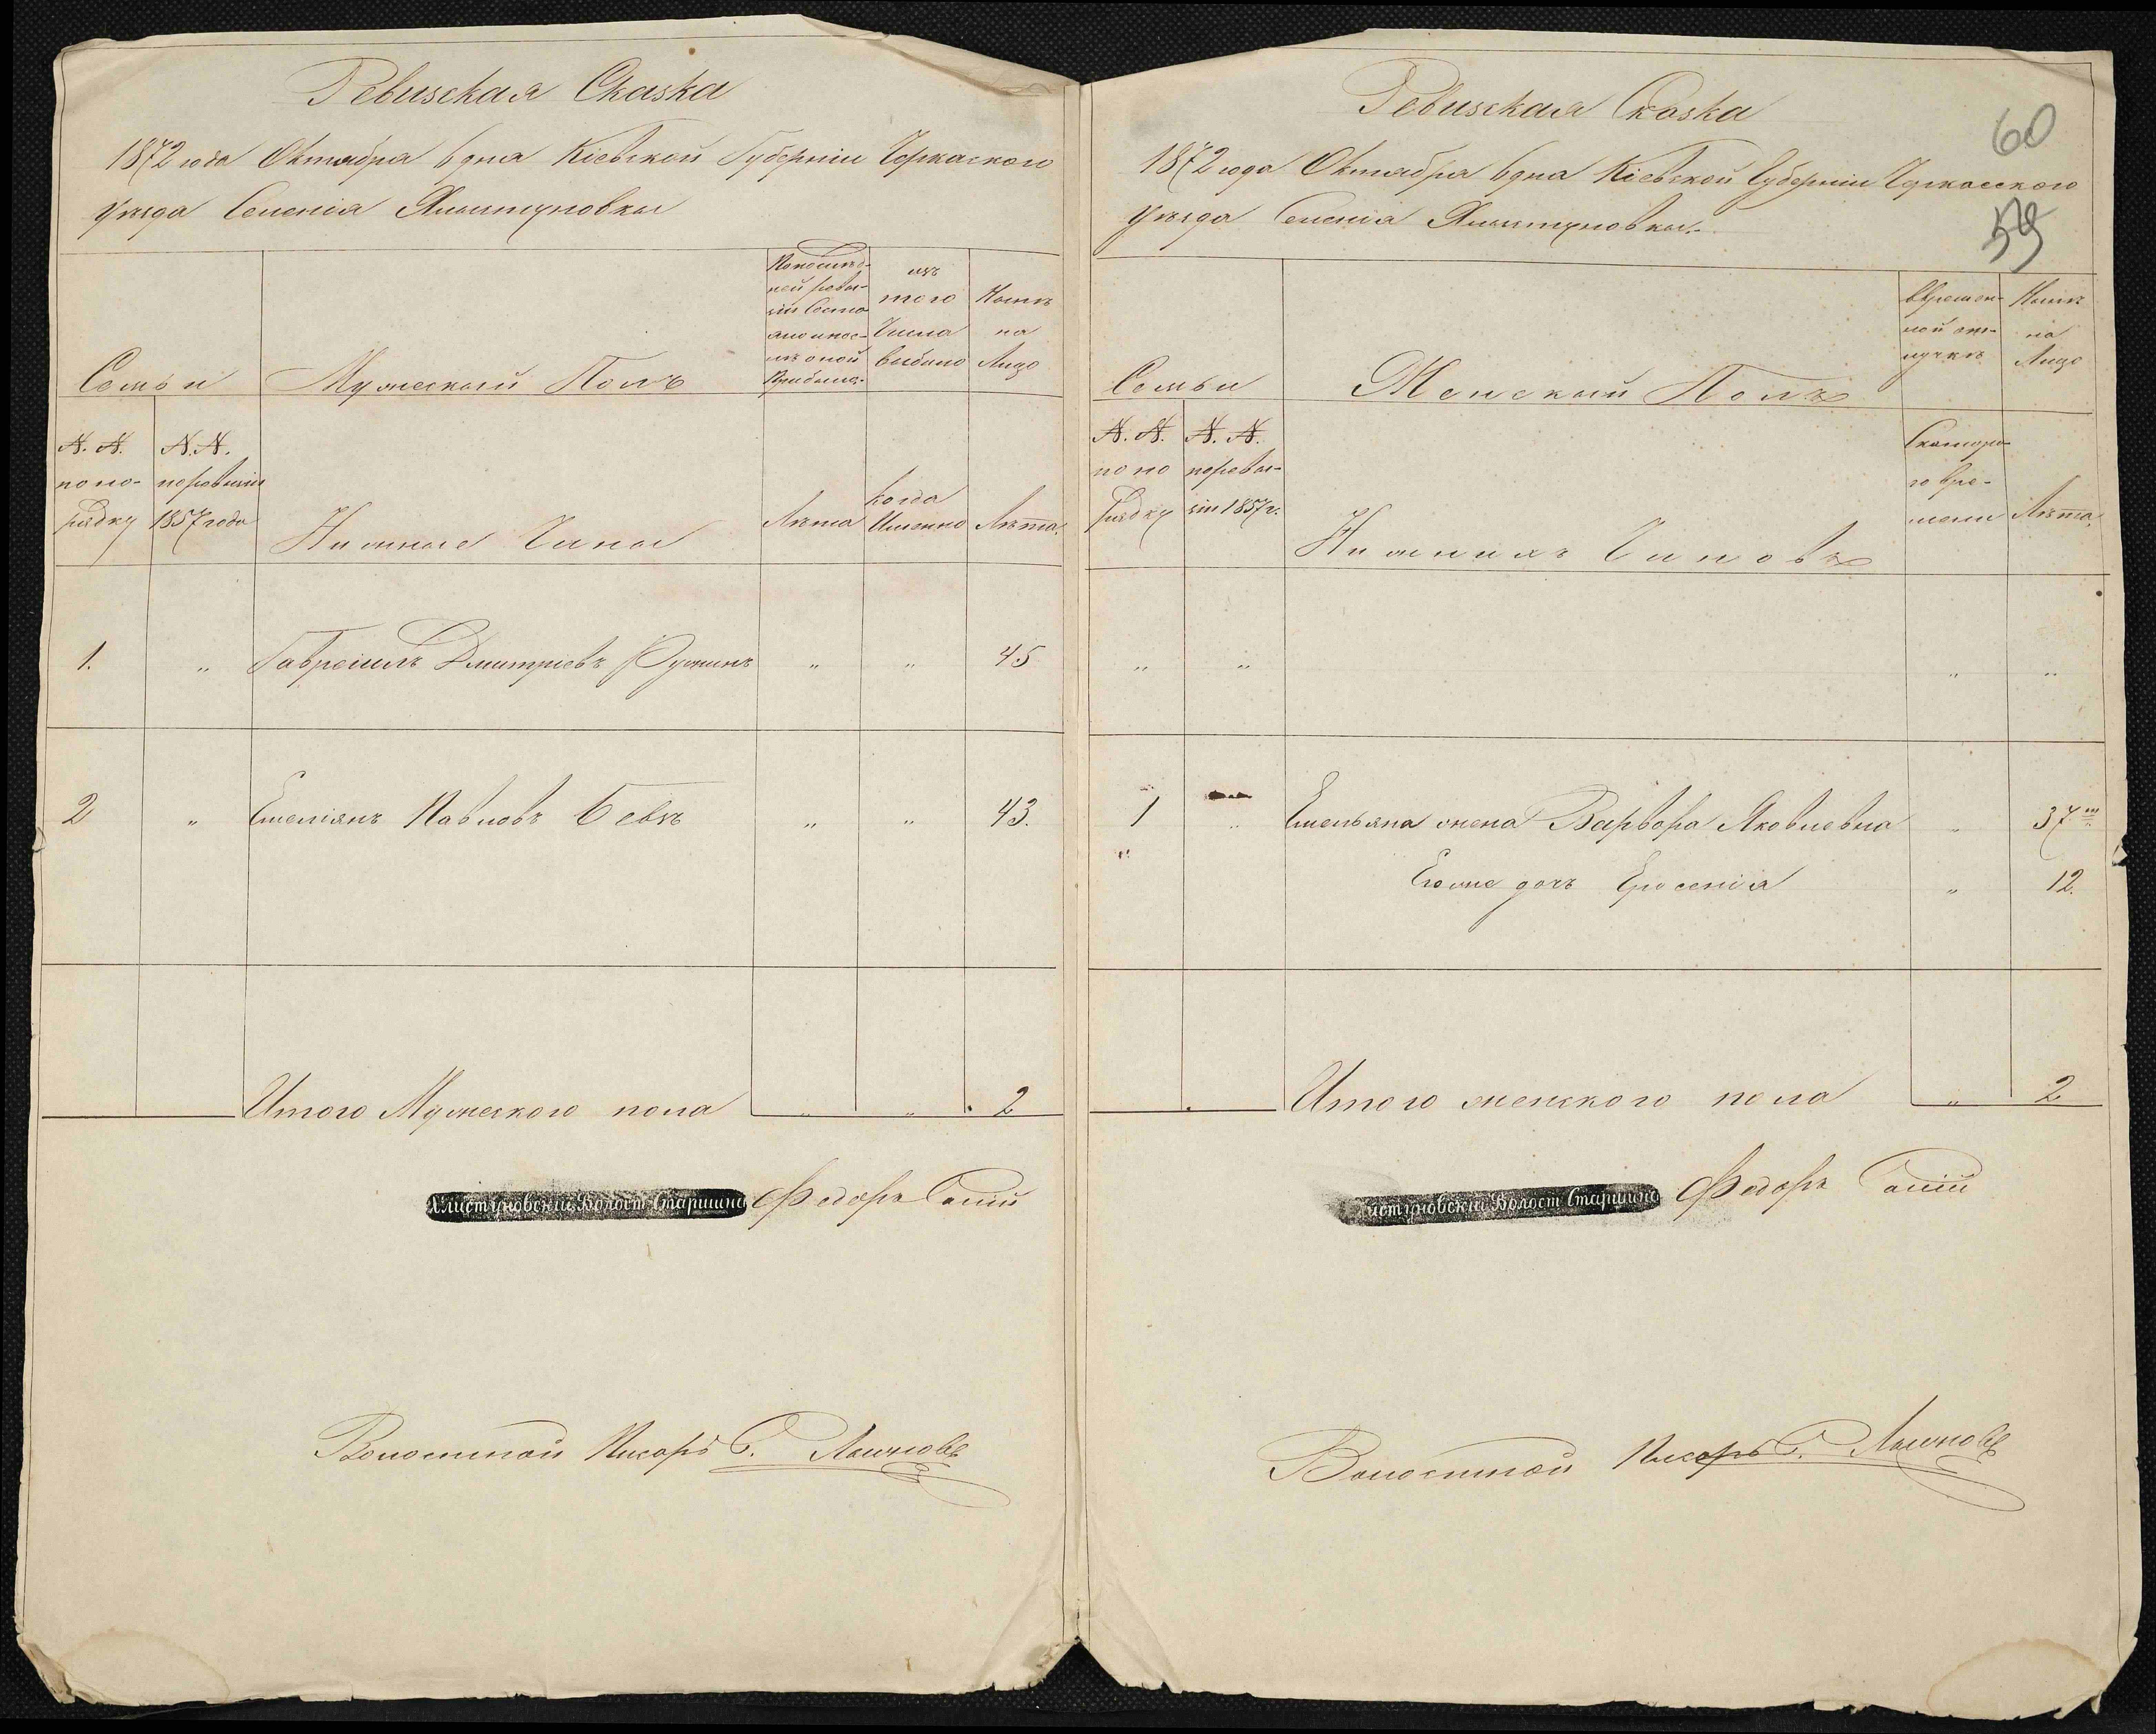 Ревизская Сказка
1872 года Октября 6 дня Кіевской Губерніи Черкаского
уезда Селенія Хлыстуновки
Семьи
Мужеский Полъ
По послед-
ней реви-
зіи Состо
яло и пос-
лѣ оной
Прибыло
изъ
того
Числа
выбыло
Нынѣ
на
Лицо
N. N.
по по-
рядку
N. N.
по ревизіи
1857 года
Нижные Чины
Лѣта
когда
Именно
Лѣта.
1. „ Гавреилъ Дмитріевъ „ „ 45
2 „ Емеліянъ Павловъ Бевзъ „ „ 43.
Итого Мужеского пола „ „ 2
Хлистуновскій Волост Старшина Федоръ
Волостной Писарь
Ревизская Сказка
60
1872 года Октября 6 дня Кіевской Губерніи Черкасского
уезда Селенія Хлыстуновки.
59
Семьи
Женский Полъ
Временной отлучкѣ
Нынѣ
на
Лицо
N. N.
по по
рядку
N. N.
по реви-
зіи 1857 г.
Нижнихъ Чиновъ
Скоторо-
го вре-
мени
Лѣта.
„ „ „ „
1 „ Емельяна жена Варвора Яковлевна „ 37
„ Егоже дочь „ 12.
Итого женского пола „ 2
истуновскій Волост Старшина Федоръ
Волостной Писарь